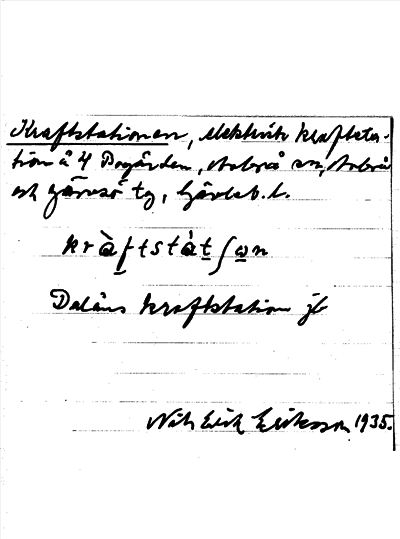 Kraftstationen, elektrisk kraftsta-
tion å 4 Progården, Stabyå sn, Stabyå
och Järvsö tg, Gävleb. l.
kràftstàtʃωn
Daléns kraftstation jb
Nils Erik Eriksson 1935.